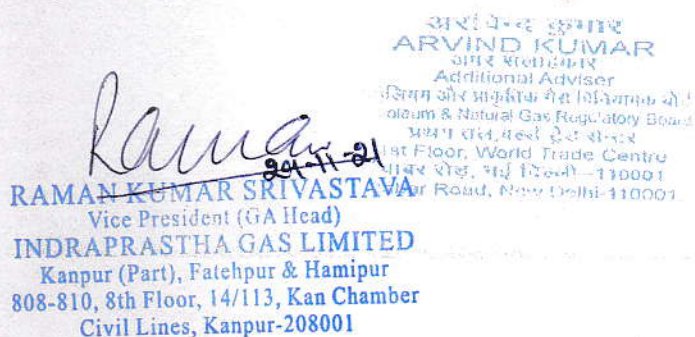 अरविन्द कुमार
ARVIND KUMAR
अपर सलाहकार
Additional Adviser
और प्राकृतिक गैस विनियामक बोर्ड
oleum & Natural Gas Regulatory Board
प्रथम तल, वर्ल्ड ट्रेड सेन्टर
1st Floor, World Trade Centre
बाबर रोड़, नई दिल्ली-110001
ar Road, New Delhi-110001
Raman
29-11-21
RAMAN KUMAR SRIVASTAVA
Vice President (GA Head)
INDRAPRASTHA GAS LIMITED
Kanpur (Part), Fatehpur & Hamipur
808-810, 8th Floor, 14/113, Kan Chamber
Civil Lines, Kanpur-208001